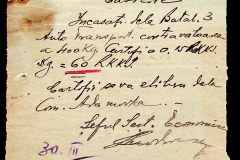 Încasați dela Batal. 3
Auto transport. contravaloarea
a 400 kg. Cartofi a 0,15 RKKS.
kg. = 60 RKKS.
Cartofii se va elibera dela
Com.
Șeful Sect. Economice
30. III